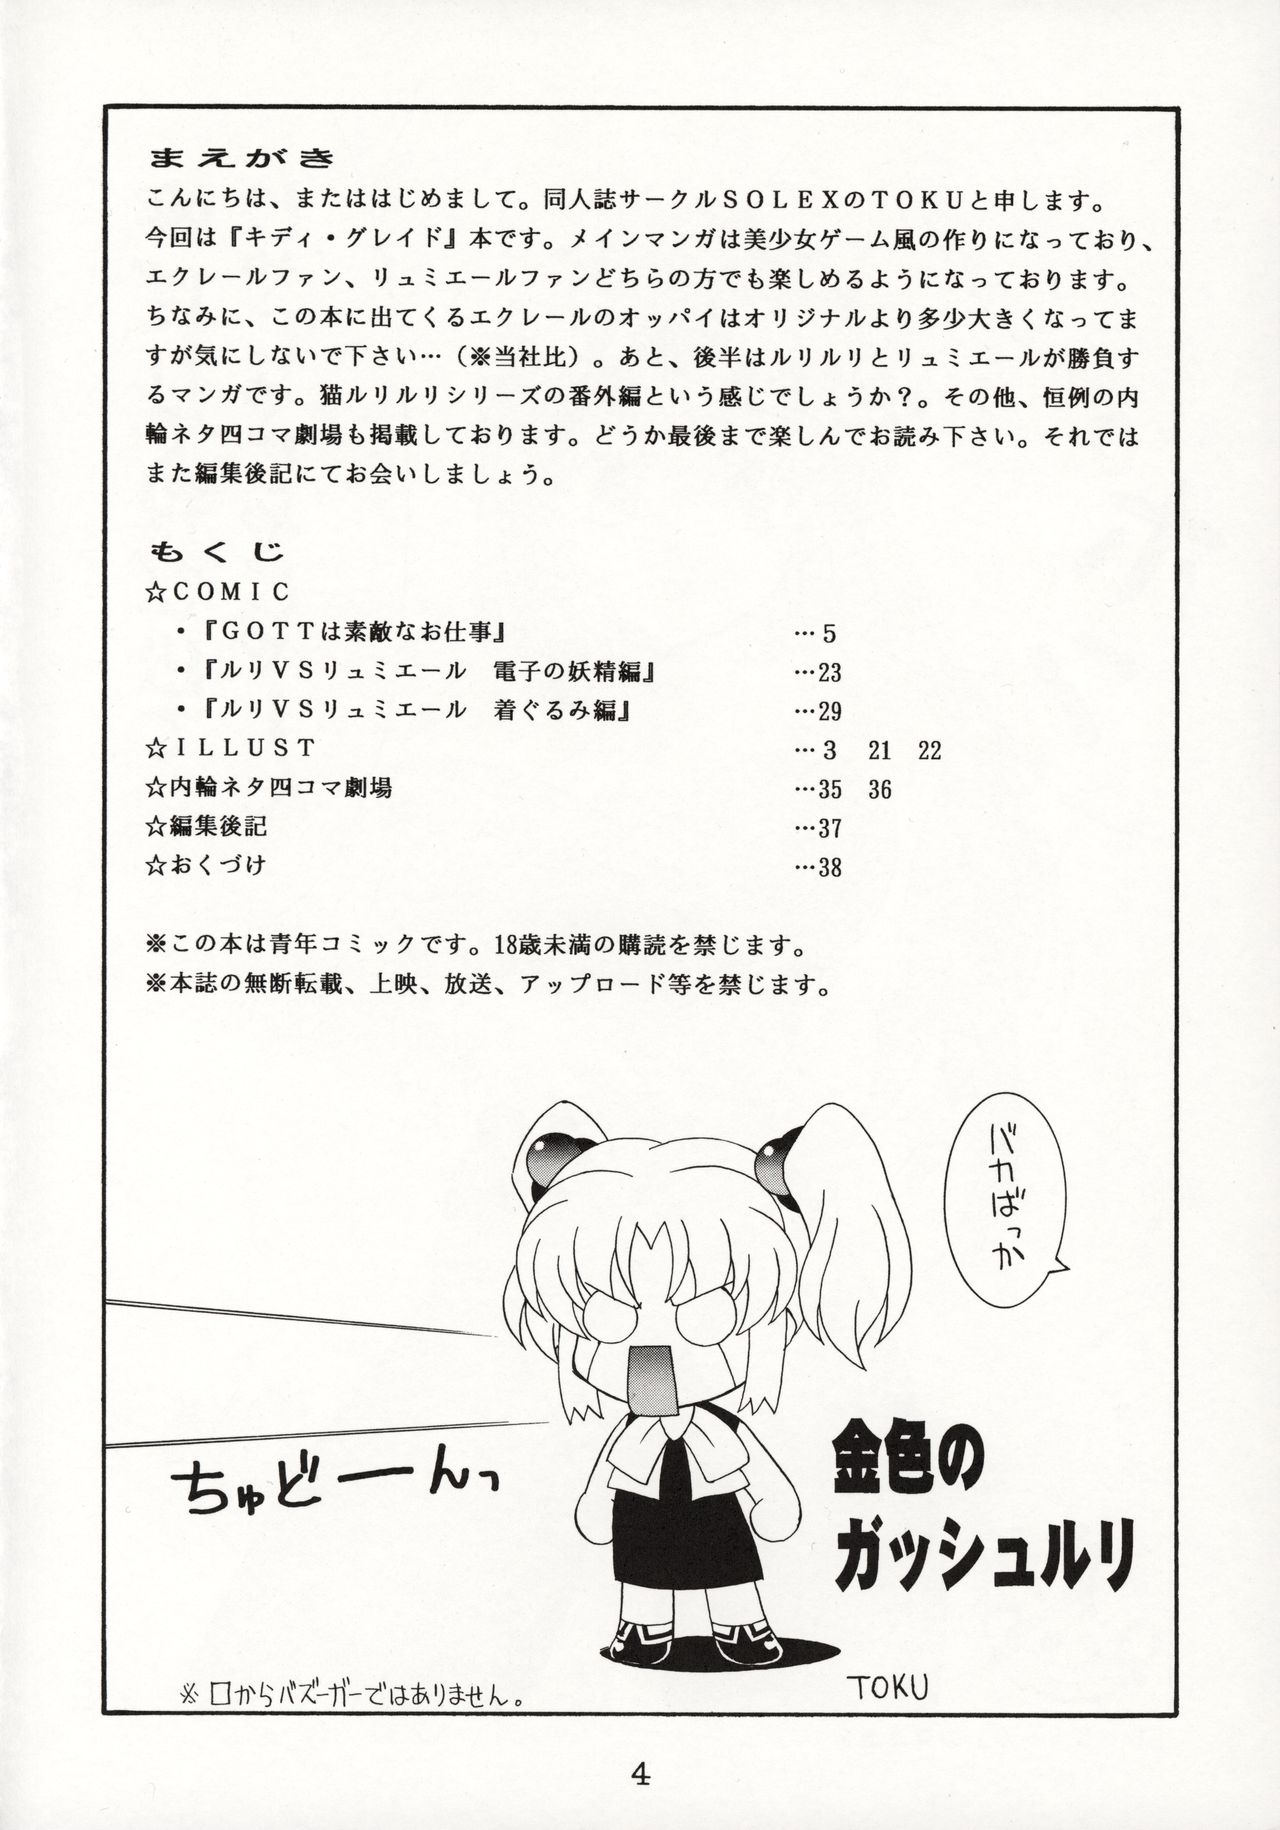 まえがき
こんにちは、またははじめまして。同人誌サークルＳＯＬＥＸのＴＯＫＵと申します。
今回は『キディ・グレイド』本です。メインマンガは美少女ゲーム風の作りになっており、
エクレールファン、リュミエールファンどちらの方でも楽しめるようになっております。
ちなみに、この本に出てくるエクレールのオッパイはオリジナルより多少大きくなってま
すが気にしないで下さい…（※当社比）。あと、後半はルリルリとリュミエールが勝負す
るマンガです。猫ルリルリシリーズの番外編という感じでしょうか？。その他、恒例の内
輪ネタ四コマ劇場も掲載しております。どうか最後まで楽しんでお読み下さい。それでは
また編集後記にてお会いしましょう。
もくじ
☆ＣＯＭＩＣ
・『ＧＯＴＴは素敵なお仕事』 …5
・『ルリＶＳリュミエール　電子の妖精編』 …23
・『ルリＶＳリュミエール　着ぐるみ編』 …29
☆ＩＬＬＵＳＴ …3　21　22
☆内輪ネタ四コマ劇場 …35　36
☆編集後記 …37
☆おくづけ …38
※この本は青年コミックです。18歳未満の購読を禁じます。
※本誌の無断転載、上映、放送、アップロード等を禁じます。
バカばっか
ちゅどーんっ
金色の
ガッシュルリ
※口からバズーガーではありません。
TOKU
4